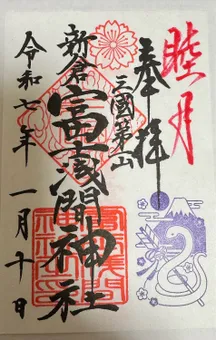 睦月
奉拝
三國第一山
新倉富士浅間神社
令和七年 一月十日